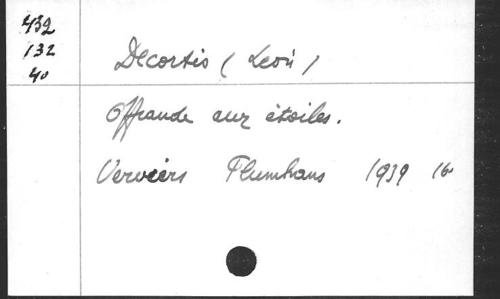 432
132
40
Decortis (Léon)
Offrande aux étoiles.
Verviers Plumhans 1939 16°